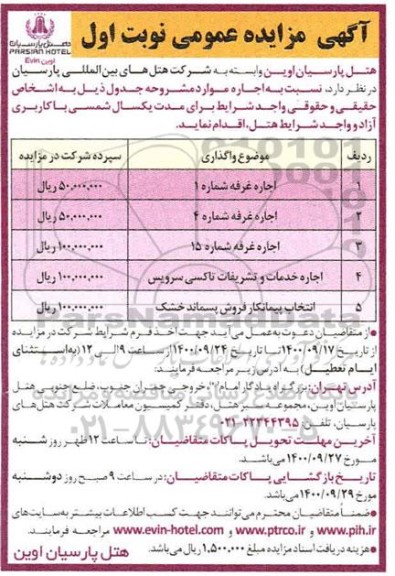 آگهی مزایده عمومی نوبت اول
هتل پارسیان
PARSIAN HOTEL
اوین Evin
هتل پارسیان اوین وابسته به شرکت هتل های بین المللی پارسیان
در نظر دارد، نسبت به اجاره موارد مشروحه جدول ذیل به اشخاص
حقیقی و حقوقی واجد شرایط برای مدت یکسال شمسی با کاربری
آزاد و واجد شرایط هتل، اقدام نماید.
ردیف موضوع واگذاری سپرده شرکت در مزایده
۱ اجاره غرفه شماره ۱ ۵۰,۰۰۰,۰۰۰ ریال
۲ اجاره غرفه شماره ۴ ۵۰,۰۰۰,۰۰۰ ریال
۳ اجاره غرفه شماره ۱۵ ۱۰۰,۰۰۰,۰۰۰ ریال
۴ اجاره خدمات و تشریفات تاکسی سرویس ۱۰۰,۰۰۰,۰۰۰ ریال
۵ انتخاب پیمانکار فروش پسماند خشک ۱۰۰,۰۰۰,۰۰۰ ریال
از متقاضیان دعوت به عمل می آید جهت اخذ فرم شرایط شرکت در مزایده
از تاریخ ۱۴۰۰/۰۹/۱۷ تا تاریخ ۱۴۰۰/۰۹/۲۴ از ساعت ۹ الی ۱۲ (به استثنای
ایام تعطیل) به آدرس زیر مراجعه فرمایند:
آدرس تهران: بزرگراه یادگار امام"ره"، خروجی چمران جنوب، ضلع جنوبی هتل
پارسیان اوین، مجموعه سپر هتل، دفتر کمیسیون معاملات شرکت هتل های
پارسیان، تلفن ۲۲۳۴۴۳۹۵-۰۲۱
آخرین مهلت تحویل پاکات متقاضیان: تا ساعت ۱۲ ظهر روز شنبه
مورخ ۱۴۰۰/۰۹/۲۷ می باشد.
تاریخ بازگشایی پاکات متقاضیان: در ساعت ۹ صبح روز دوشنبه
مورخ ۱۴۰۰/۰۹/۲۹ می باشد.
ضمناً متقاضیان محترم می توانند جهت کسب اطلاعات بیشتر به سایت های
www.pih.ir و www.ptrco.ir و www.evin-hotel.com مراجعه فرمایند.
هزینه دریافت اسناد مزایده مبلغ ۱,۵۰۰,۰۰۰ ریال می باشد.
هتل پارسیان اوین